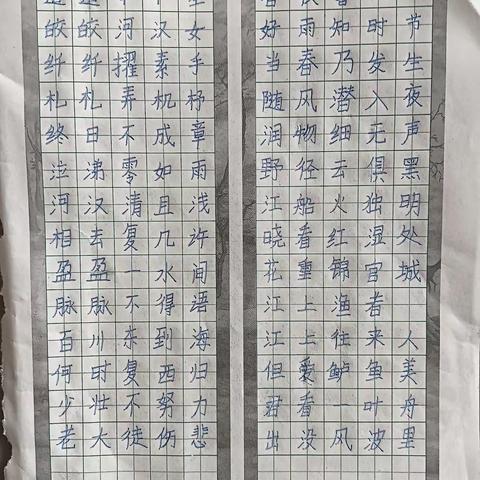 皎皎河汉女
纤纤擢素手
札札弄机杼
终日不成章
泣涕零如雨
河汉清且浅
相去复几许
盈盈一水间
脉脉不得语
百川东到海
何时复西归
少壮不努力
老大徒伤悲
好雨知时节
当春乃发生
随风潜入夜
润物细无声
野径云俱黑
江船火独明
晓看红湿处
花重锦官城
江上渔者
江上往来人
但爱鲈鱼美
君看一叶舟
出没风波里